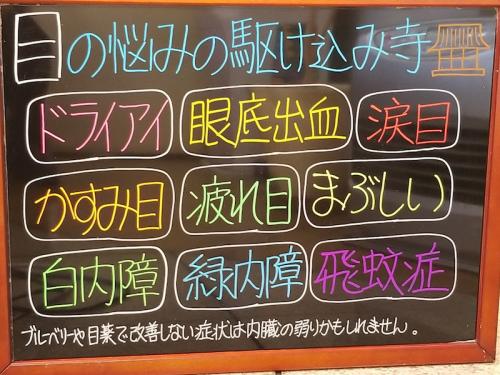 目の悩みの駆け込み寺
ドライアイ 眼底出血 涙目
かすみ目 疲れ目 まぶしい
白内障 緑内障 飛蚊症
ブルーベリーや目薬で改善しない症状は内臓の弱りかもしれません。